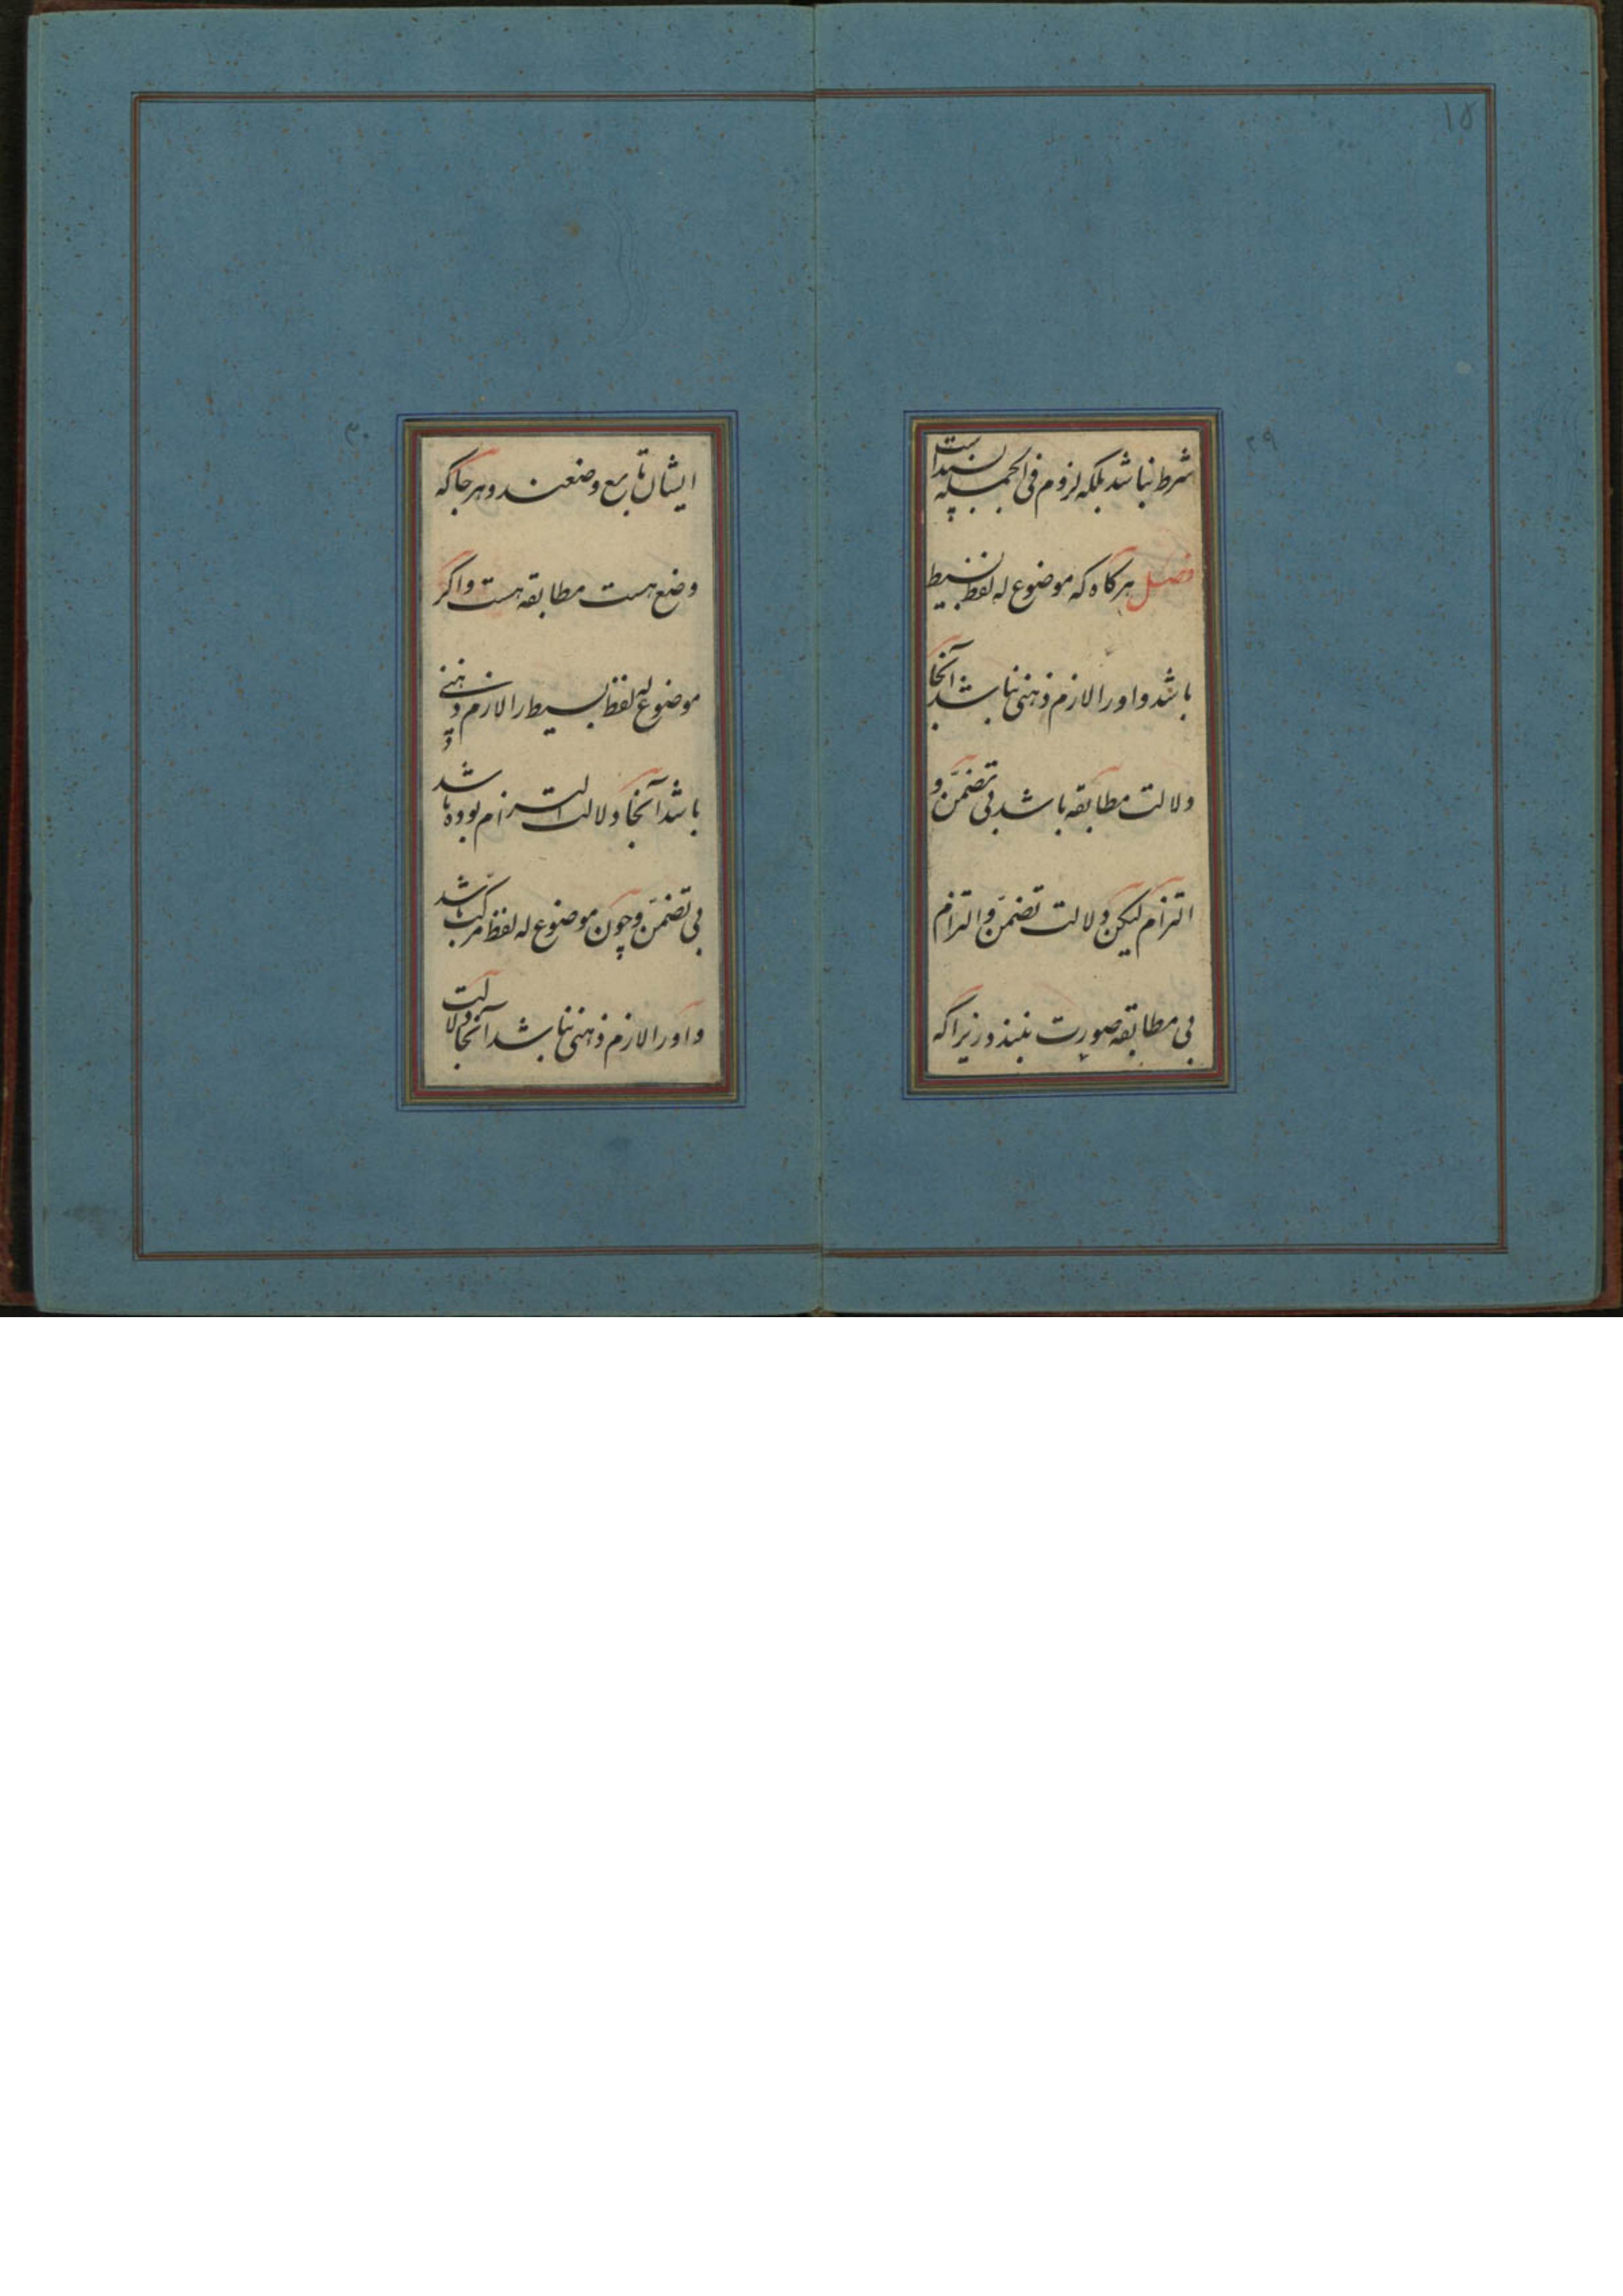 ۱۵
۲۹
شرط نباشد بلکه لزوم فی الجمله بسنده است
فصل هرگاه که موضوع له لفظ بسیط
باشد و او را لازم ذهنی نباشد آنجا
دلالت مطابقه باشد بی تضمّن و
التزام لیکن دلالت تضمّن و التزام
بی مطابقه صورت نبندد زیرا که
۳۰
ایشان تابع وضعند و هر جا که
وضع هست مطابقه هست و اگر
موضوع له لفظ بسیط را لازم ذهنی
باشد آنجا دلالت التزام بوده باشد
بی تضمّن و چون موضوع له لفظ مرکب باشد
و او را لازم ذهنی نباشد آنجا دلالت